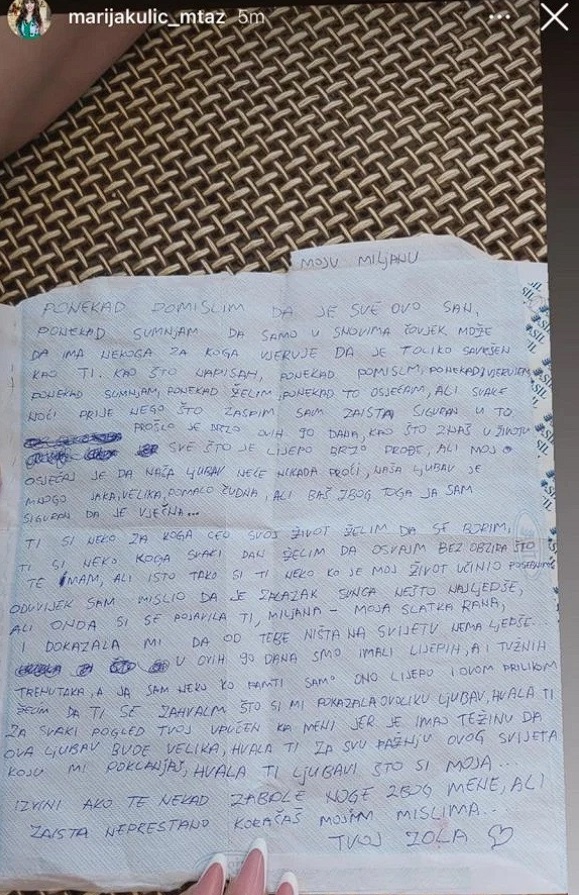 marijakulic_mtaz 5m
MOJU MILJANU
PONEKAD POMISLIM DA JE SVE OVO SAN,
PONEKAD SUMNJAM DA SAMO U SNOVIMA ČOVJEK MOŽE
DA IMA NEKOGA ZA KOGA VJERUJE DA JE TOLIKO SAVRŠEN
KAO TI. KAO ŠTO NAPISAH, PONEKAD POMISLIM, PONEKAD VJERUJEM,
PONEKAD SUMNJAM, PONEKAD ŽELIM, PONEKAD TO OSJEĆAM, ALI SVAKE
NOĆI PRIJE NEGO ŠTO ZASPIM SAM ZAISTA SIGURAN U TO.
PROŠLO JE BRZO OVIH 90 DANA, KAO ŠTO ZNAŠ U ŽIVOTU
SVE ŠTO JE LIJEPO BRZO PROĐE, ALI MOJ
OSJEĆAJ JE DA NAŠA LJUBAV NEĆE NIKADA PROĆI, NAŠA LJUBAV JE
MNOGO JAKA, VELIKA, POMALO ČUDNA, ALI BAŠ ZBOG TOGA JA SAM
SIGURAN DA JE VJEČNA...
TI SI NEKO ZA KOGA CEO SVOJ ŽIVOT ŽELIM DA SE BORIM,
TI SI NEKO KOGA SVAKI DAN ŽELIM DA OSVAJM BEZ OBZIRA ŠTO
TE IMAM, ALI ISTO TAKO SI TI NEKO KO JE MOJ ŽIVOT UČINIO POSEBNIM
ODUVIJEK SAM MISLIO DA JE ZALAZAK SUNCA NEŠTO NAJLJEPŠE,
ALI ONDA SI SE POJAVILA TI, MILJANA - MOJA SLATKA RANA,
I DOKAZALA MI DA OD TEBE NIŠTA NA SVIJETU NEMA LJEPŠE...
U OVIH 90 DANA SMO IMALI LIJEPIH, A I TUŽNIH
TRENUTAKA, A JA SAM NEKO KO PAMTI SAMO ONO LIJEPO I OVOM PRILIKOM
ŽELIM DA TI SE ZAHVALM ŠTO SI MI POKAZALA OVOLIKU LJUBAV, HVALA TI
ZA SVAKI POGLED TVOJ UPUĆEN KA MENI JER JE IMAO TEŽINU DA
OVA LJUBAV BUDE VELIKA, HVALA TI ZA SVU PAŽNJU OVOG SVIJETA
KOJU MI POKLANJAŠ, HVALA TI LJUBAVI ŠTO SI MOJA...
IZVINI AKO TE NEKAD ZABOLE NOGE ZBOG MENE, ALI
ZAISTA NEPRESTANO KORAČAŠ MOJIM MISLIMA...
TVOJ ZOLA